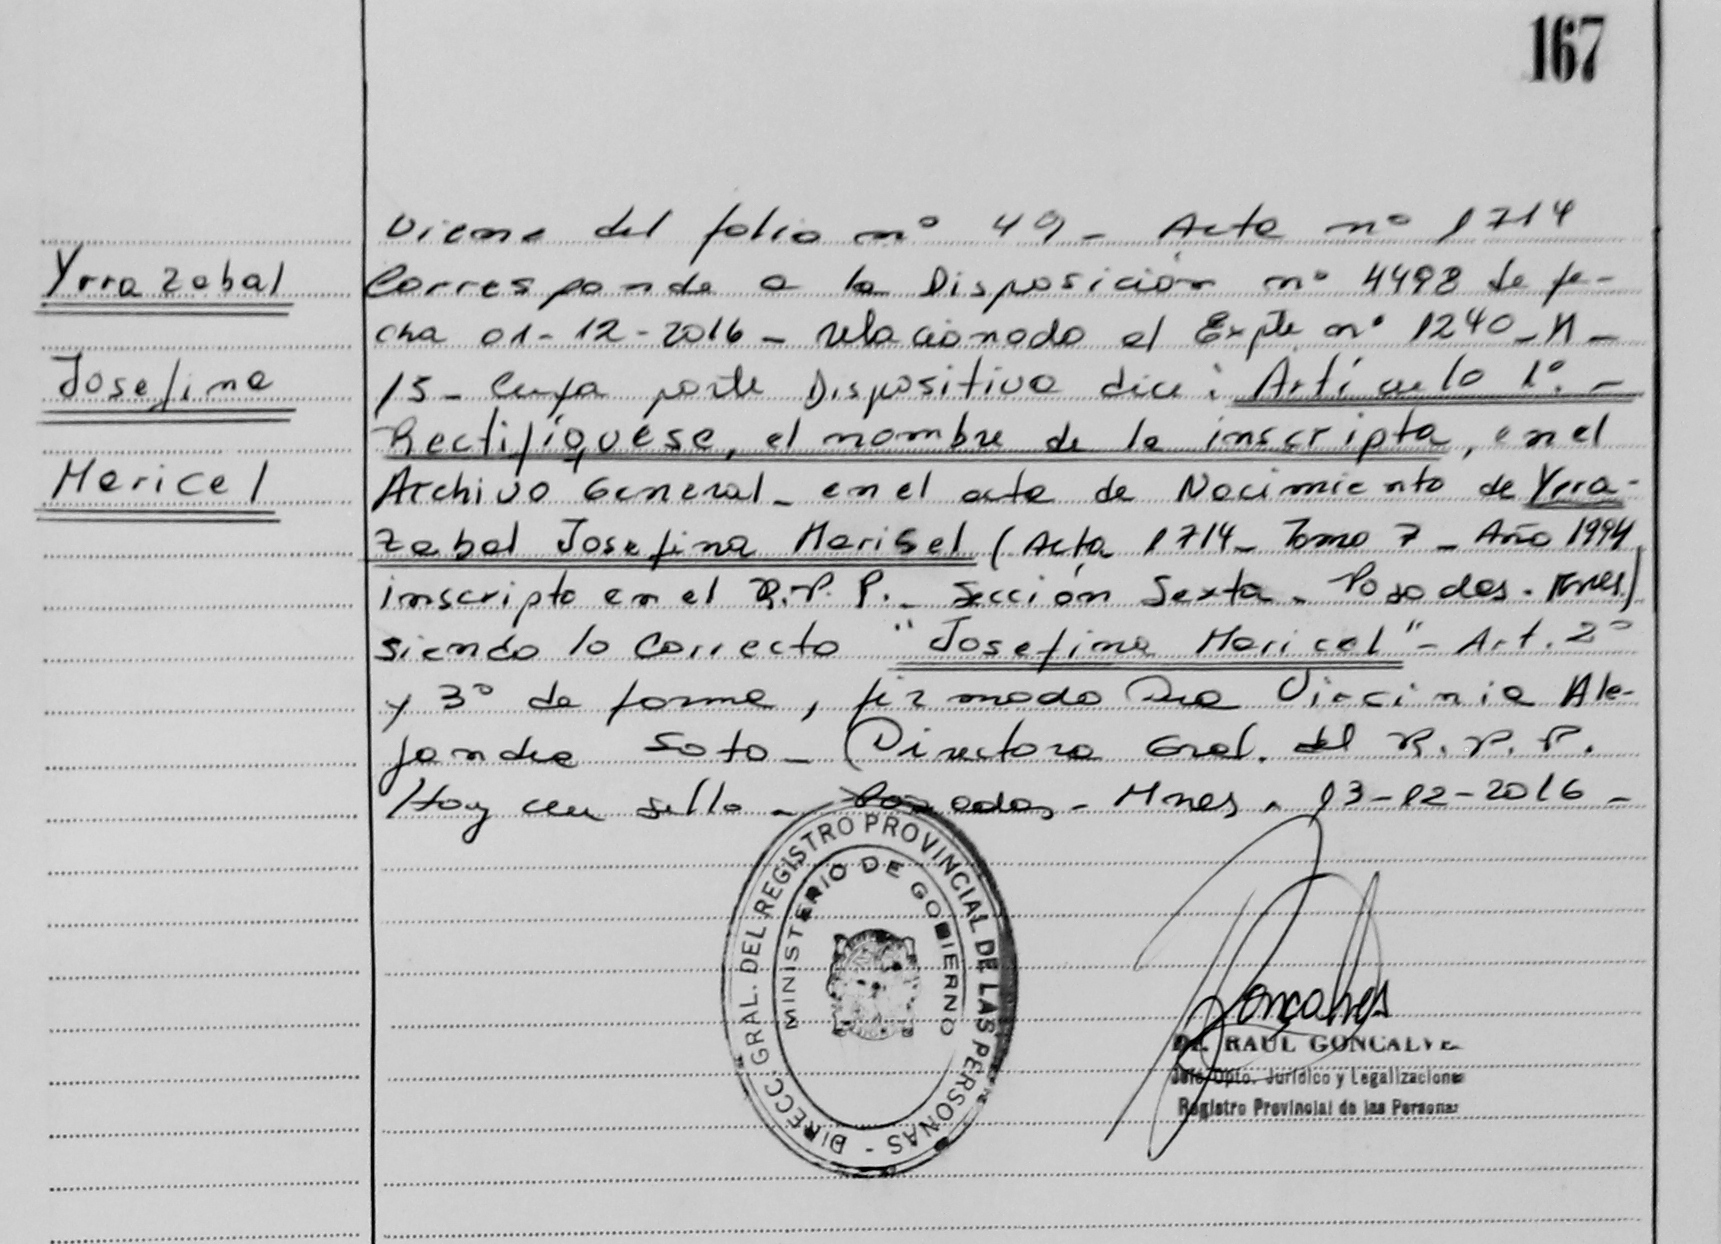 167
Yrrazabal
Josefina
Maricel
Viene del folio nº 49 - Acta nº 1714
Corresponde a la Disposición nº 4498 de fe-
cha 01-12-2016 - relacionado al Expte nº 1240 - N -
15 - Cuya parte Dispositiva dice: Artículo 1º. -
Rectifíquese, el nombre de la inscripta, en el
Archivo General - en el acta de Nacimiento de Yrra-
zabal Josefina Marisel (Acta 1714 - Tomo 7 - Año 1994
inscripto en el R.P.P. - Sección Sexta - Posadas - Mnes)
siendo lo Correcto "Josefina Maricel" - Art. 2º
y 3º de forma, firmado Dra Virginia Ale-
jandra Soto - (Directora Gral. del R.P.P.
Hay un sello - Posadas - Mnes. 13-12-2016 -
DIRECC. GRAL. DEL REGISTRO PROVINCIAL DE LAS PERSONAS -
MINISTERIO DE GOBIERNO
Goncalves
Dr. RAUL GONCALVE
Jefe Dpto. Jurídico y Legalizacione
Registro Provincial de las Personas